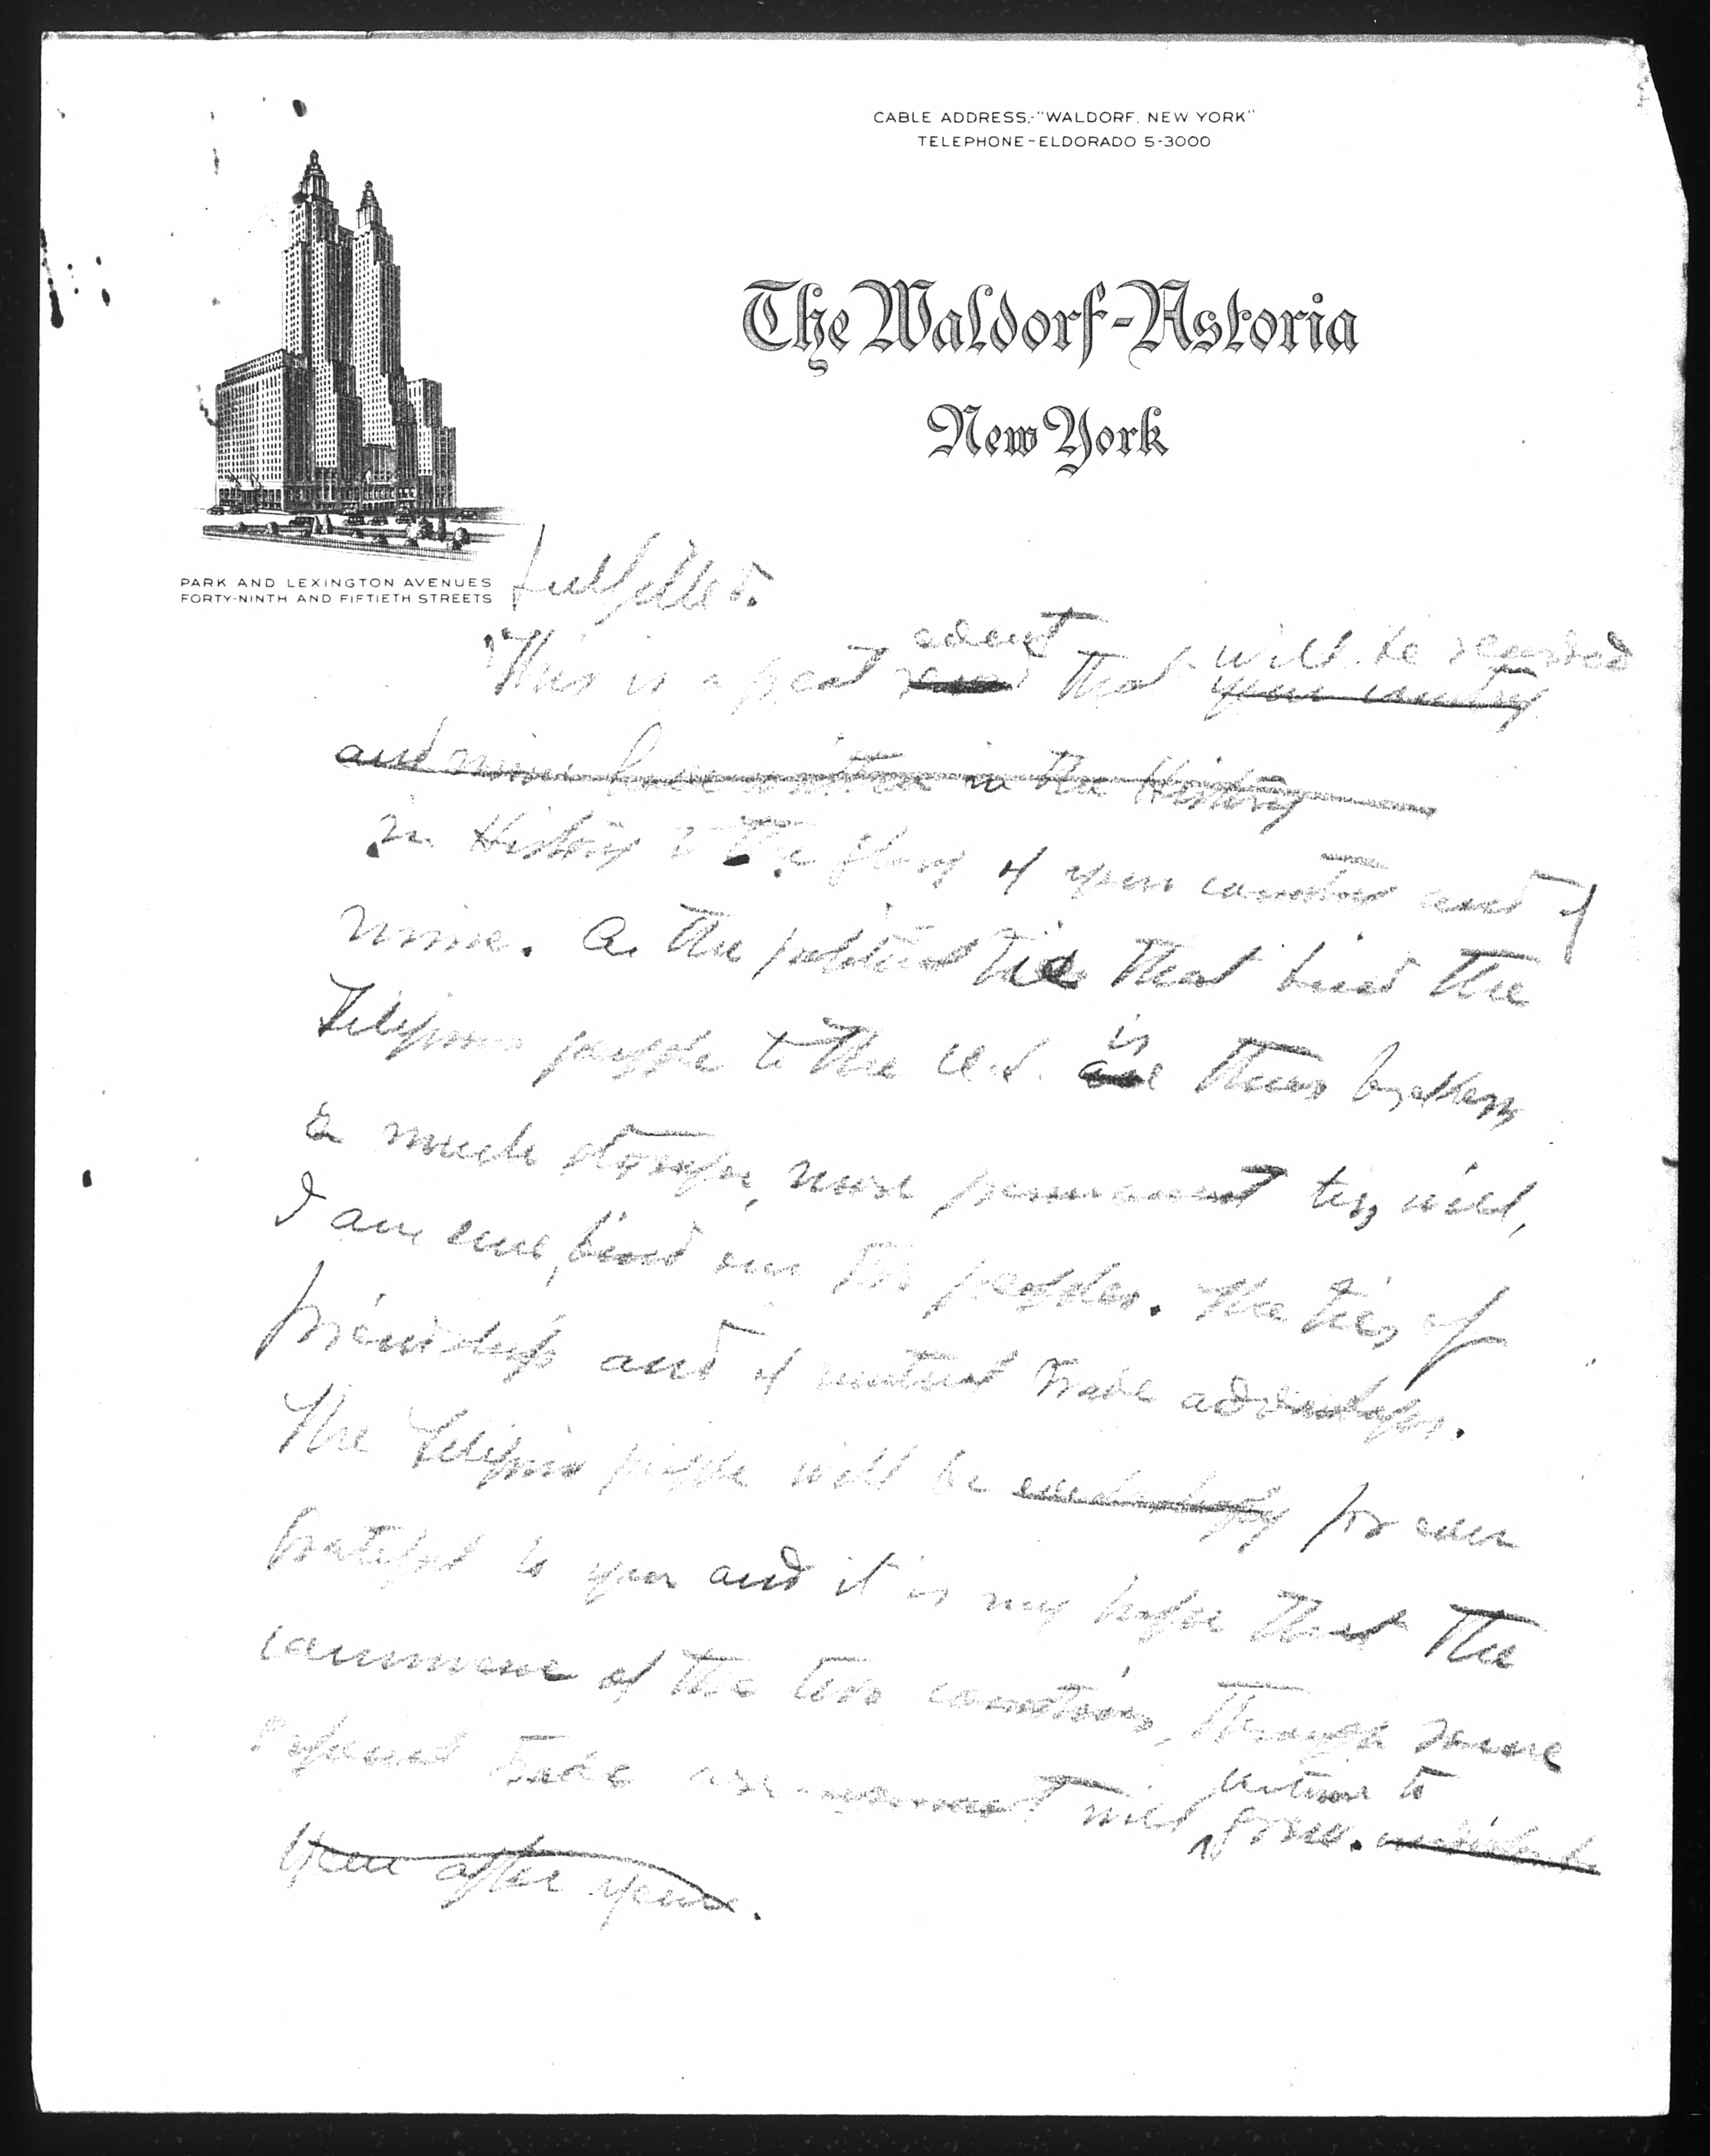 CABLE ADDRESS,-"WALDORF, NEW YORK"
TELEPHONE-ELDORADO 5-3000
The Waldorf-Astoria
New York
PARK AND LEXINGTON AVENUES
FORTY-NINTH AND FIFTIETH STREETS
fulfilled.
event will be recorded
"This is a great that your country
and mine have written in the History
in History to the glory of your country and of
mine. As the political tie that bind the
is
Filipino people to the U.S. are thus broken
a much stronger, more permanent ties will,
I am sure, bind our two peoples. The ties of
friendship and of mutual trade advantages.
The Filipino people will be for ever
grateful to you and it is my hope that the
commerce of the two countries, through some
return to
trade will grow.
year after year.